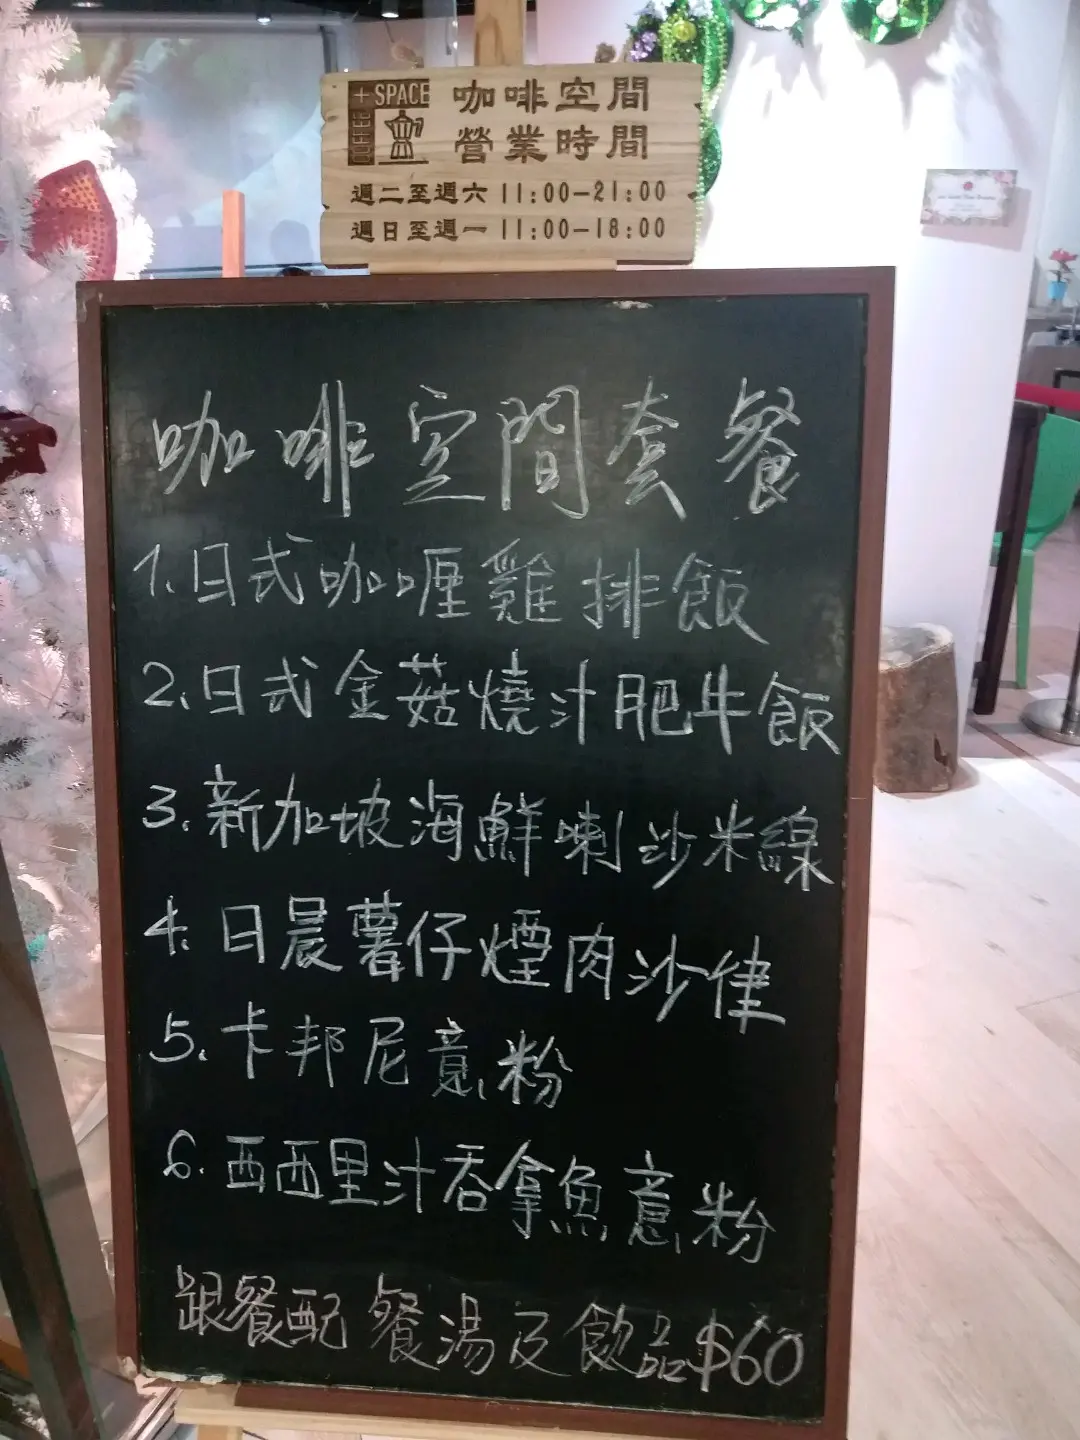 + SPACE
COFFEE
咖啡空間
營業時間
週二至週六 11:00-21:00
週日至週一 11:00-18:00
咖啡空間套餐
1.日式咖喱雞排飯
2.日式金菇燒汁肥牛飯
3.新加坡海鮮喇沙米線
4.日晨薯仔煙肉沙律
5.卡邦尼意粉
6.西西里汁吞拿魚意粉
跟餐配餐湯及飲品$60